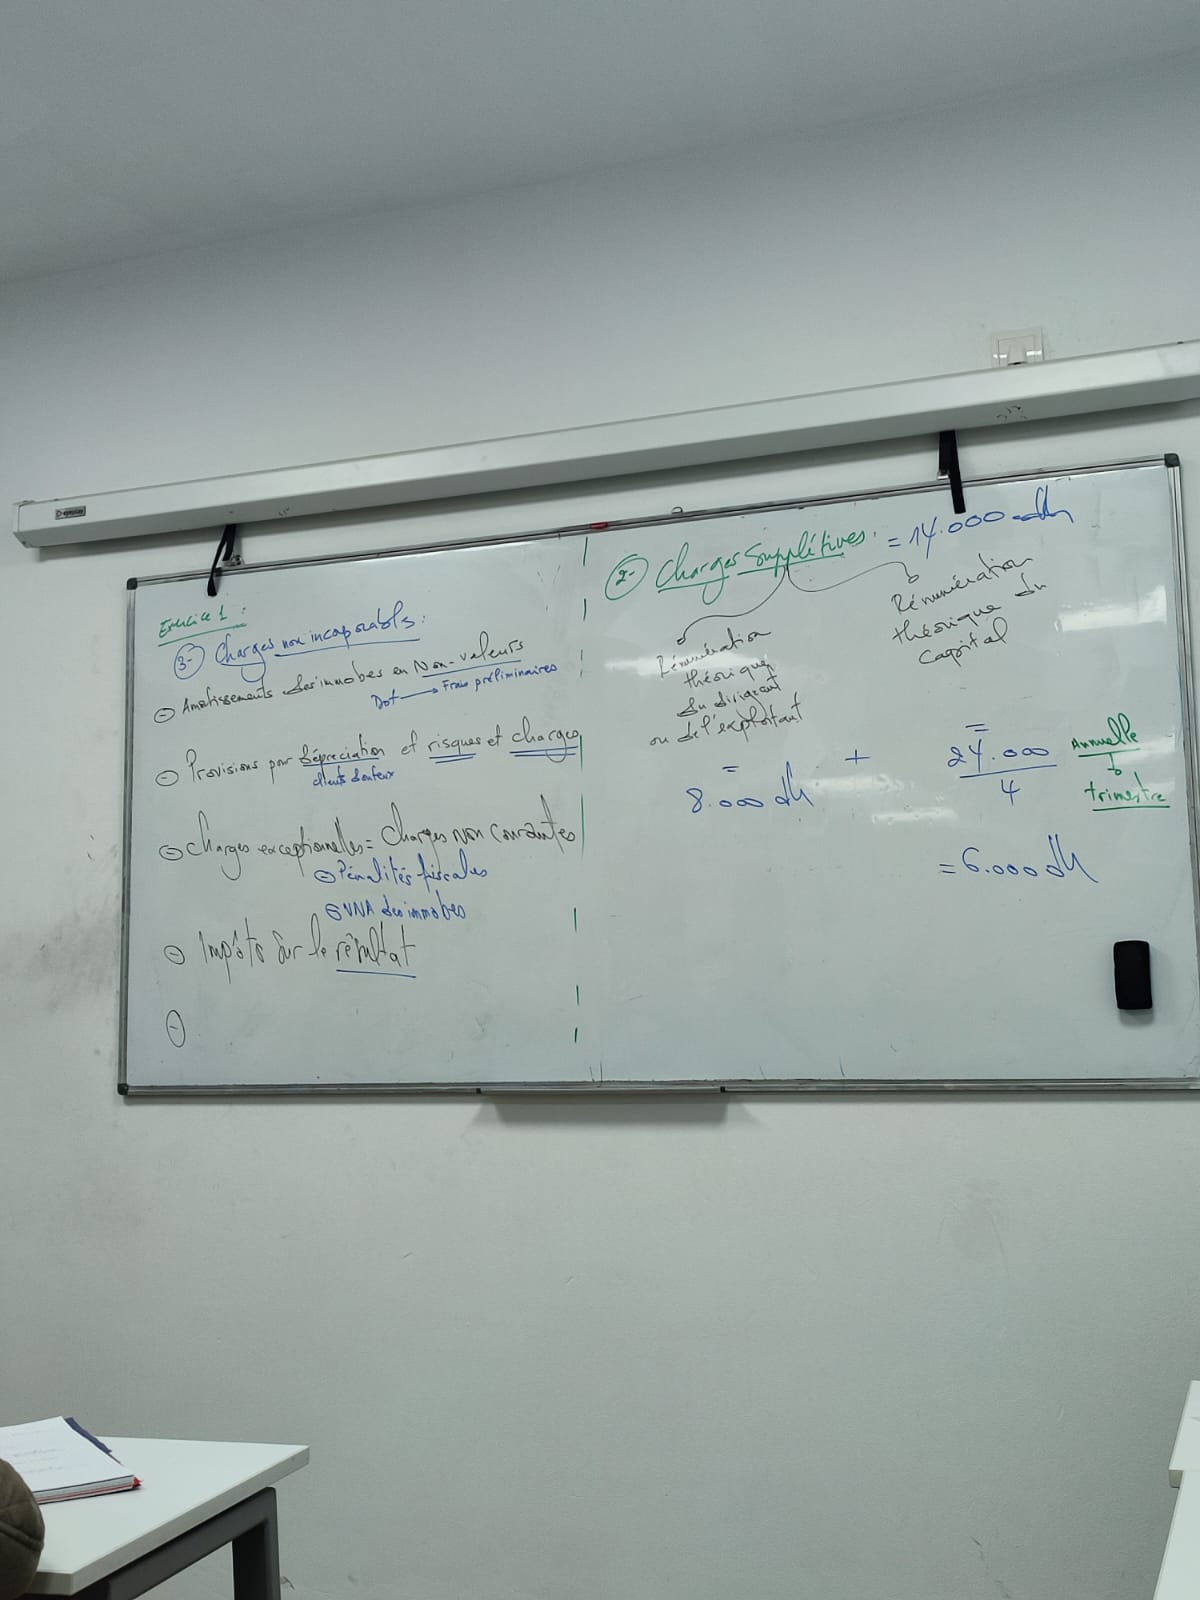 Exercice 1 :
3- Charges non incoporabls :
- Amortissements des immobes en Non-valeurs
Dot → Frais préliminaires
- Provisions pour dépreciation et risques et charges
clients douteux
- Charges exceptionnelles = Charges non courantes
- Pénalités fiscales
- VNA des immobes
- Impôts sur le résultat
-
2- Charges Supplétives. = 14.000 dh
Rémunération
théorique
du dirigeant
ou de l'exploitant
=
8.000 dh
+
Rémunération
théorique du
capital
=
24.000
4
Annuelle
trimestre
= 6.000 dh